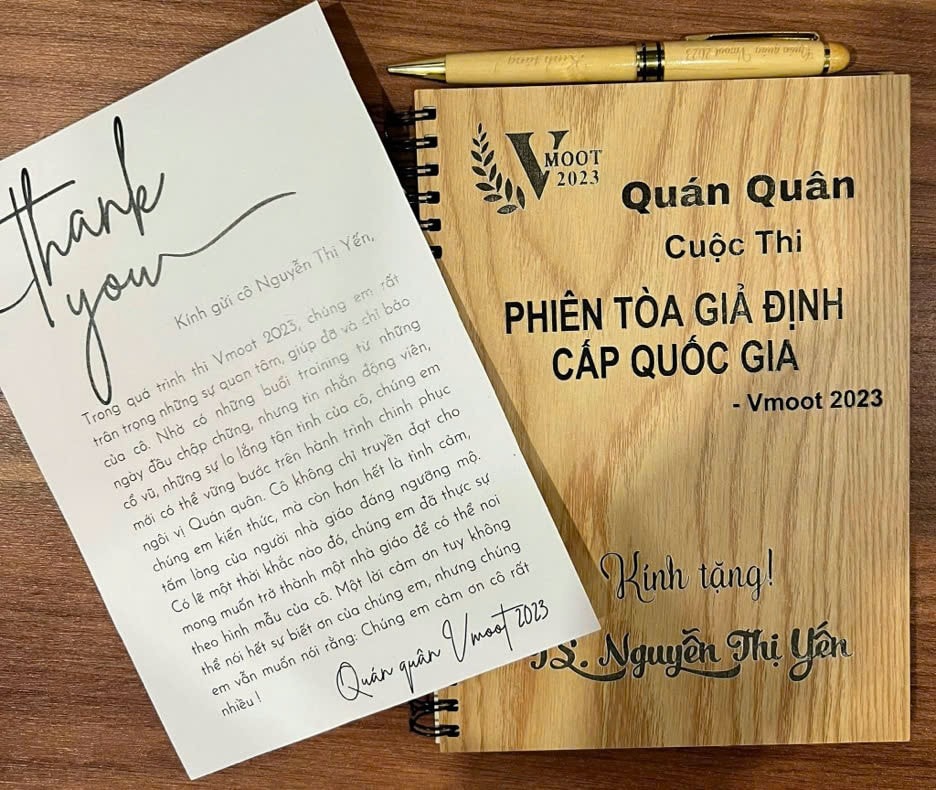 Thank
you
Kính gửi cô Nguyễn Thị Yến,
Trong quá trình thi Vmoot 2023, chúng em rất
trân trọng những sự quan tâm, giúp đỡ và chỉ bảo
của cô. Nhờ có những buổi training từ những
ngày đầu chập chững, nhưng tin nhắn động viên,
cổ vũ, những sự lo lắng tận tình của cô, chúng em
mới có thể vững bước trên hành trình chinh phục
ngôi vị Quán quân. Cô không chỉ truyền đạt cho
chúng em kiến thức, mà còn hơn hết là tình cảm,
tấm lòng của người nhà giáo đáng ngưỡng mộ.
Có lẽ một thời khắc nào đó, chúng em đã thực sự
mong muốn trở thành một nhà giáo để có thể noi
theo hình mẫu của cô. Một lời cảm ơn tuy không
thể nói hết sự biết ơn của chúng em, nhưng chúng
em vẫn muốn nói rằng: Chúng em cảm ơn cô rất
nhiều !
Quán quân Vmoot 2023
Kính tặng! Quán quân Vmoot 2023
VMOOT
2023
Quán Quân
Cuộc Thi
PHIÊN TÒA GIẢ ĐỊNH
CẤP QUỐC GIA
- Vmoot 2023
Kính tặng!
TS. Nguyễn Thị Yến